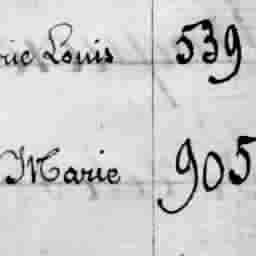 ric Louis 539
Marie 905